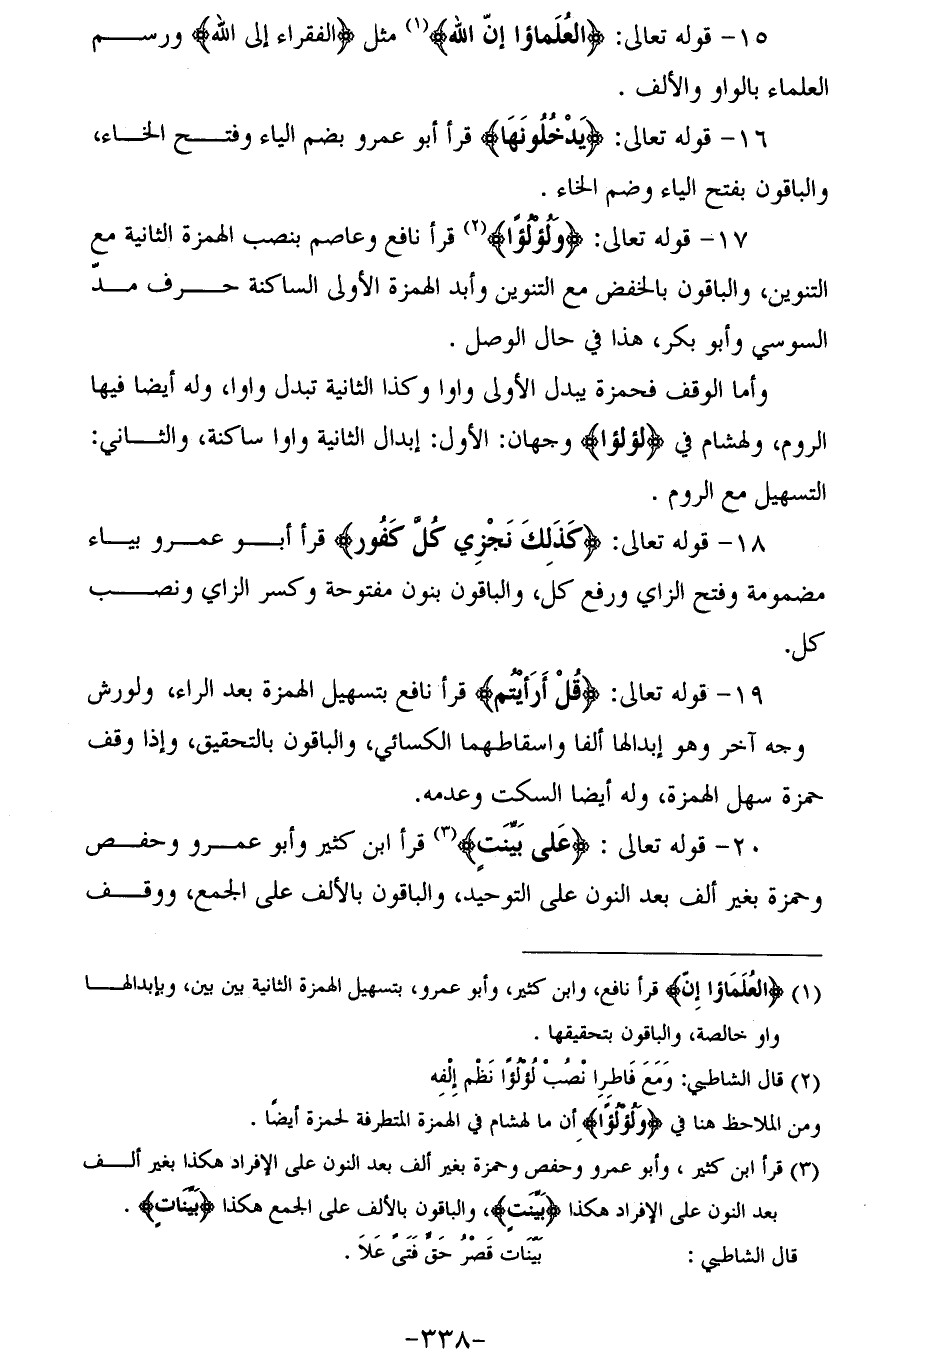 ١٥- قوله تعالى: ﴿العُلَماؤا إنّ الله﴾(١) مثل ﴿الفقراء إلى الله﴾ ورسم
العلماء بالواو والألف .
١٦- قوله تعالى: ﴿يَدْخُلُونَهَا﴾ قرأ أبو عمرو بضم الياء وفتح الخاء،
والباقون بفتح الياء وضم الخاء .
١٧- قوله تعالى: ﴿وَلُؤْلُؤًا﴾(٢) قرأ نافع وعاصم بنصب الهمزة الثانية مع
التنوين، والباقون بالخفض مع التنوين وأبد الهمزة الأولى الساكنة حرف مدّ
السوسي وأبو بكر، هذا في حال الوصل .
وأما الوقف فحمزة يبدل الأولى واوا وكذا الثانية تبدل واوا، وله أيضا فيها
الروم، ولهشام في ﴿لؤلؤا﴾ وجهان: الأول: إبدال الثانية واوا ساكنة، والثاني:
التسهيل مع الروم .
١٨- قوله تعالى: ﴿كَذَلِكَ نَجْزِي كُلَّ كَفُور﴾ قرأ أبو عمرو بياء
مضمومة وفتح الزاي ورفع كل، والباقون بنون مفتوحة وكسر الزاي ونصب
كل.
١٩- قوله تعالى: ﴿قُلْ أَرَأَيْتُم﴾ قرأ نافع بتسهيل الهمزة بعد الراء، ولورش
وجه آخر وهو إبدالها ألفا واسقاطهما الكسائي، والباقون بالتحقيق، وإذا وقف
حمزة سهل الهمزة، وله أيضا السكت وعدمه.
٢٠- قوله تعالى : ﴿عَلى بَيِّنَتٍ﴾(٣) قرأ ابن كثير وأبو عمرو وحفص
وحمزة بغير ألف بعد النون على التوحيد، والباقون بالألف على الجمع، ووقف
(١) ﴿العُلَمَاؤا إنّ﴾ قرأ نافع، وابن كثير، وأبو عمرو، بتسهيل الهمزة الثانية بين بين، وبإبدالها
واو خالصة، والباقون بتحقيقها .
(٢) قال الشاطبي: وَمَعَ فَاطِرِا نْصُبْ لُؤْلُؤًا نَظْم إِلْفِه
ومن الملاحظ هنا في ﴿وَلُؤْلُؤًا﴾ أن ما لهشام في الهمزة المتطرفة لحمزة أيضًا .
(٣) قرأ ابن كثير ، وأبو عمرو وحفص وحمزة بغير ألف بعد النون على الإفراد هكذا بغير ألف
بعد النون على الإفراد هكذا ﴿بَيِّنَتٍ﴾، والباقون بالألف على الجمع هكذا ﴿بَيِّنَاتٍ﴾ .
قال الشاطبي : بَيِّنَات قَصْرُ حَقٍّ فَتىً عَلاَ .
-٣٣٨-